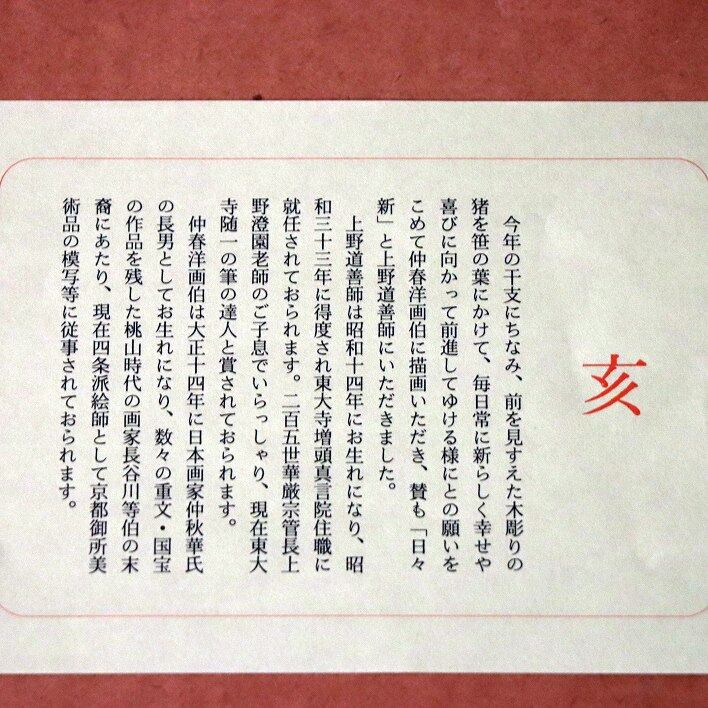 亥
今年の干支にちなみ、前を見すえた木彫りの
猪を笹の葉にかけて、毎日常に新らしく幸せや
喜びに向かって前進してゆける様にとの願いを
こめて仲春洋画伯に描画いただき、賛も「日々
新」と上野道善師にいただきました。
上野道善師は昭和十四年にお生れになり、昭
和三十三年に得度され東大寺塔頭真言院住職に
就任されておられます。二百五世華厳宗管長上
野澄園老師のご子息でいらっしゃり、現在東大
寺随一の筆の達人と賞されておられます。
仲春洋画伯は大正十四年に日本画家仲秋華氏
の長男としてお生れになり、数々の重文・国宝
の作品を残した桃山時代の画家長谷川等伯の末
裔にあたり、現在四条派絵師として京都御所美
術品の模写等に従事されておられます。